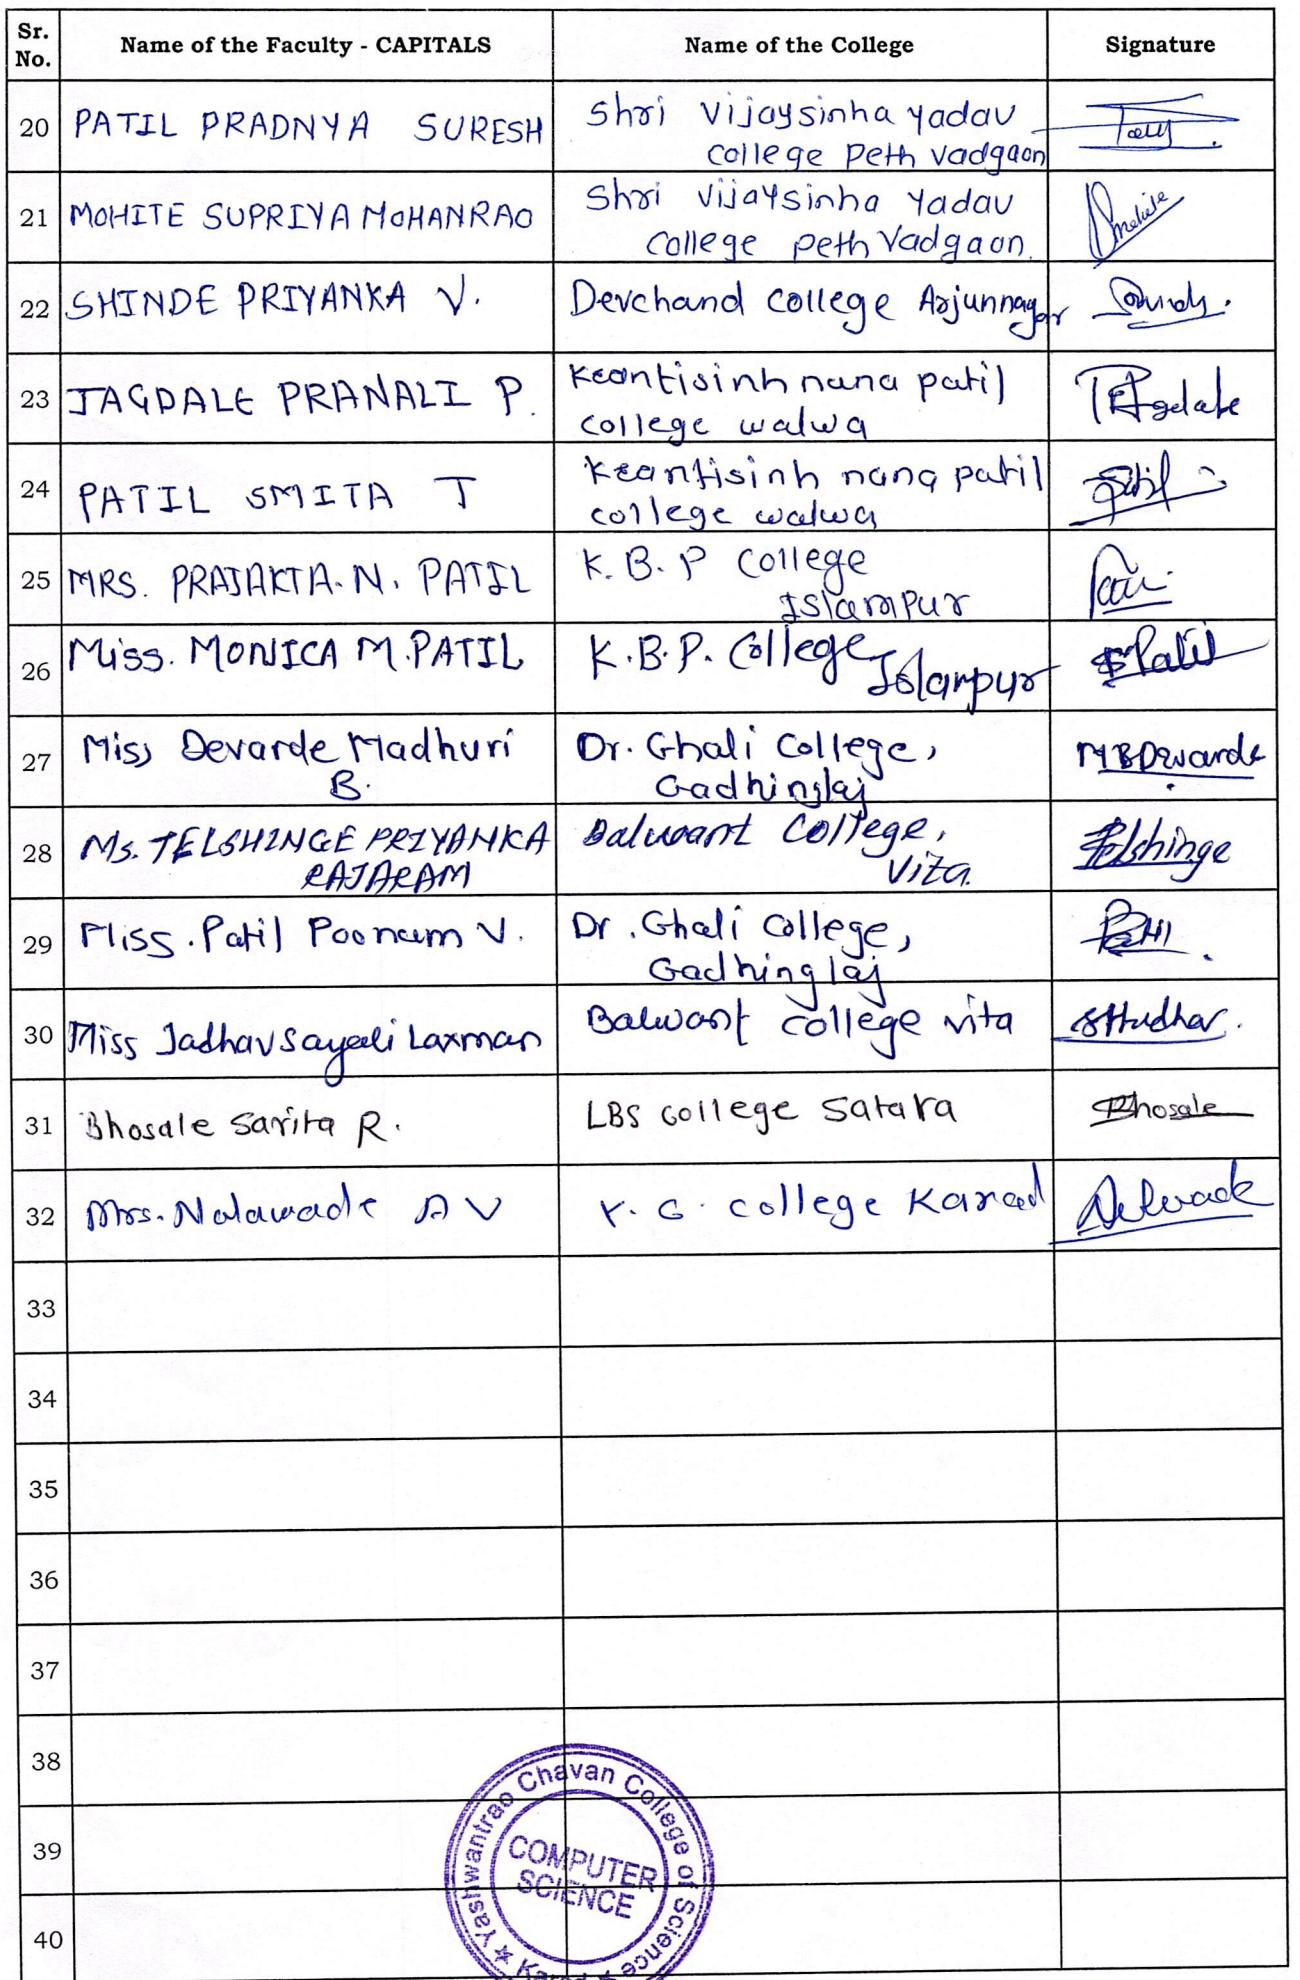 Sr. No. Name of the Faculty - CAPITALS Name of the College Signature
20 PATIL PRADNYA SURESH Shri Vijaysinha Yadav
College Peth Vadgaon
21 MOHITE SUPRIYA MOHANRAO Shri Vijaysinha Yadav
College Peth Vadgaon
22 SHINDE PRIYANKA V. Devchand College Arjunnagar
23 JAGDALE PRANALI P. Krantisinh nana patil
college walwa
24 PATIL SMITA J Krantisinh nana patil
college walwa
25 MRS. PRAJAKTA. N. PATIL K. B. P College
Islampur
26 Miss. MONICA M. PATIL K.B.P. College, Islampur Patil
27 Miss Devarde Madhuri Dr. Ghali College, MBDevarde
B. Gadhinglaj
28 Ms. TELSHINGE PRIYANKA Balwant College, Telshinge
RAJARAM Vita.
29 Miss. Patil Poonam V. Dr. Ghali College, Patil
Gadhinglaj
30 Miss Jadhav Sayali Laxman Balwant College vita
31 Bhosale Sarita R. LBS college Satara Bhosale
32 Mrs. Nalawade A V Y. C. College Karad
33
34
35
36
37
38
39
40
Yashwantrao Chavan College of Science
★ Karad ★
COMPUTER
SCIENCE